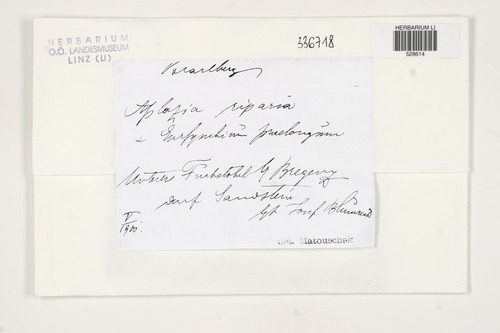 HERBARIUM
O.Ö. LANDESMUSEUM
LINZ (LI)
336718
HERBARIUM LI
528614
Vorarlberg
Aplozia riparia.
+ Eurhynchium praelongum
Unteres b/ Bregenz
auf Sandstein
lgt Josef Blumrich
V
1900.
det. Matouschek